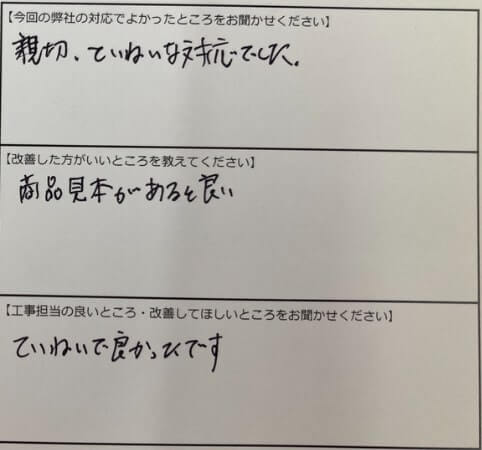 【今回の弊社の対応でよかったところをお聞かせください】
親切、ていねいな対応でした。
【改善した方がいいところを教えてください】
商品見本があると良い
【工事担当の良いところ・改善してほしいところをお聞かせください】
ていねいで良かったです